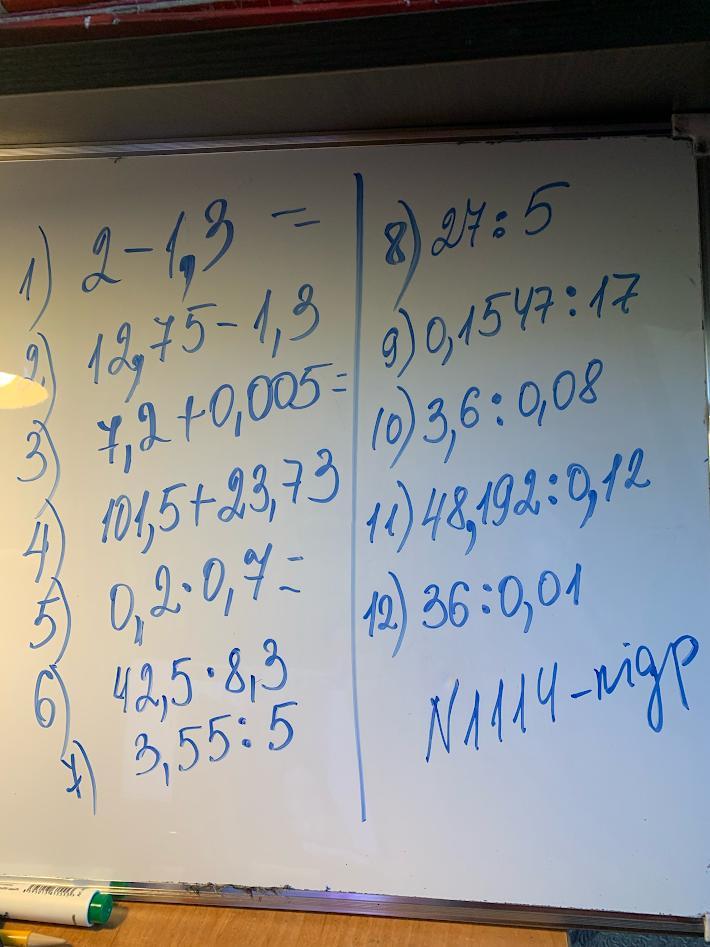 1) 2 - 1,3 =
2) 12,75 - 1,3
3) 7,2 + 0,005 =
4) 101,5 + 23,73
5) 0,2 · 0,7 =
6) 42,5 · 8,3
7) 3,55 : 5
8) 27 : 5
9) 0,1547 : 17
10) 3,6 : 0,08
11) 48,192 : 0,12
12) 36 : 0,01
N1114 - підр